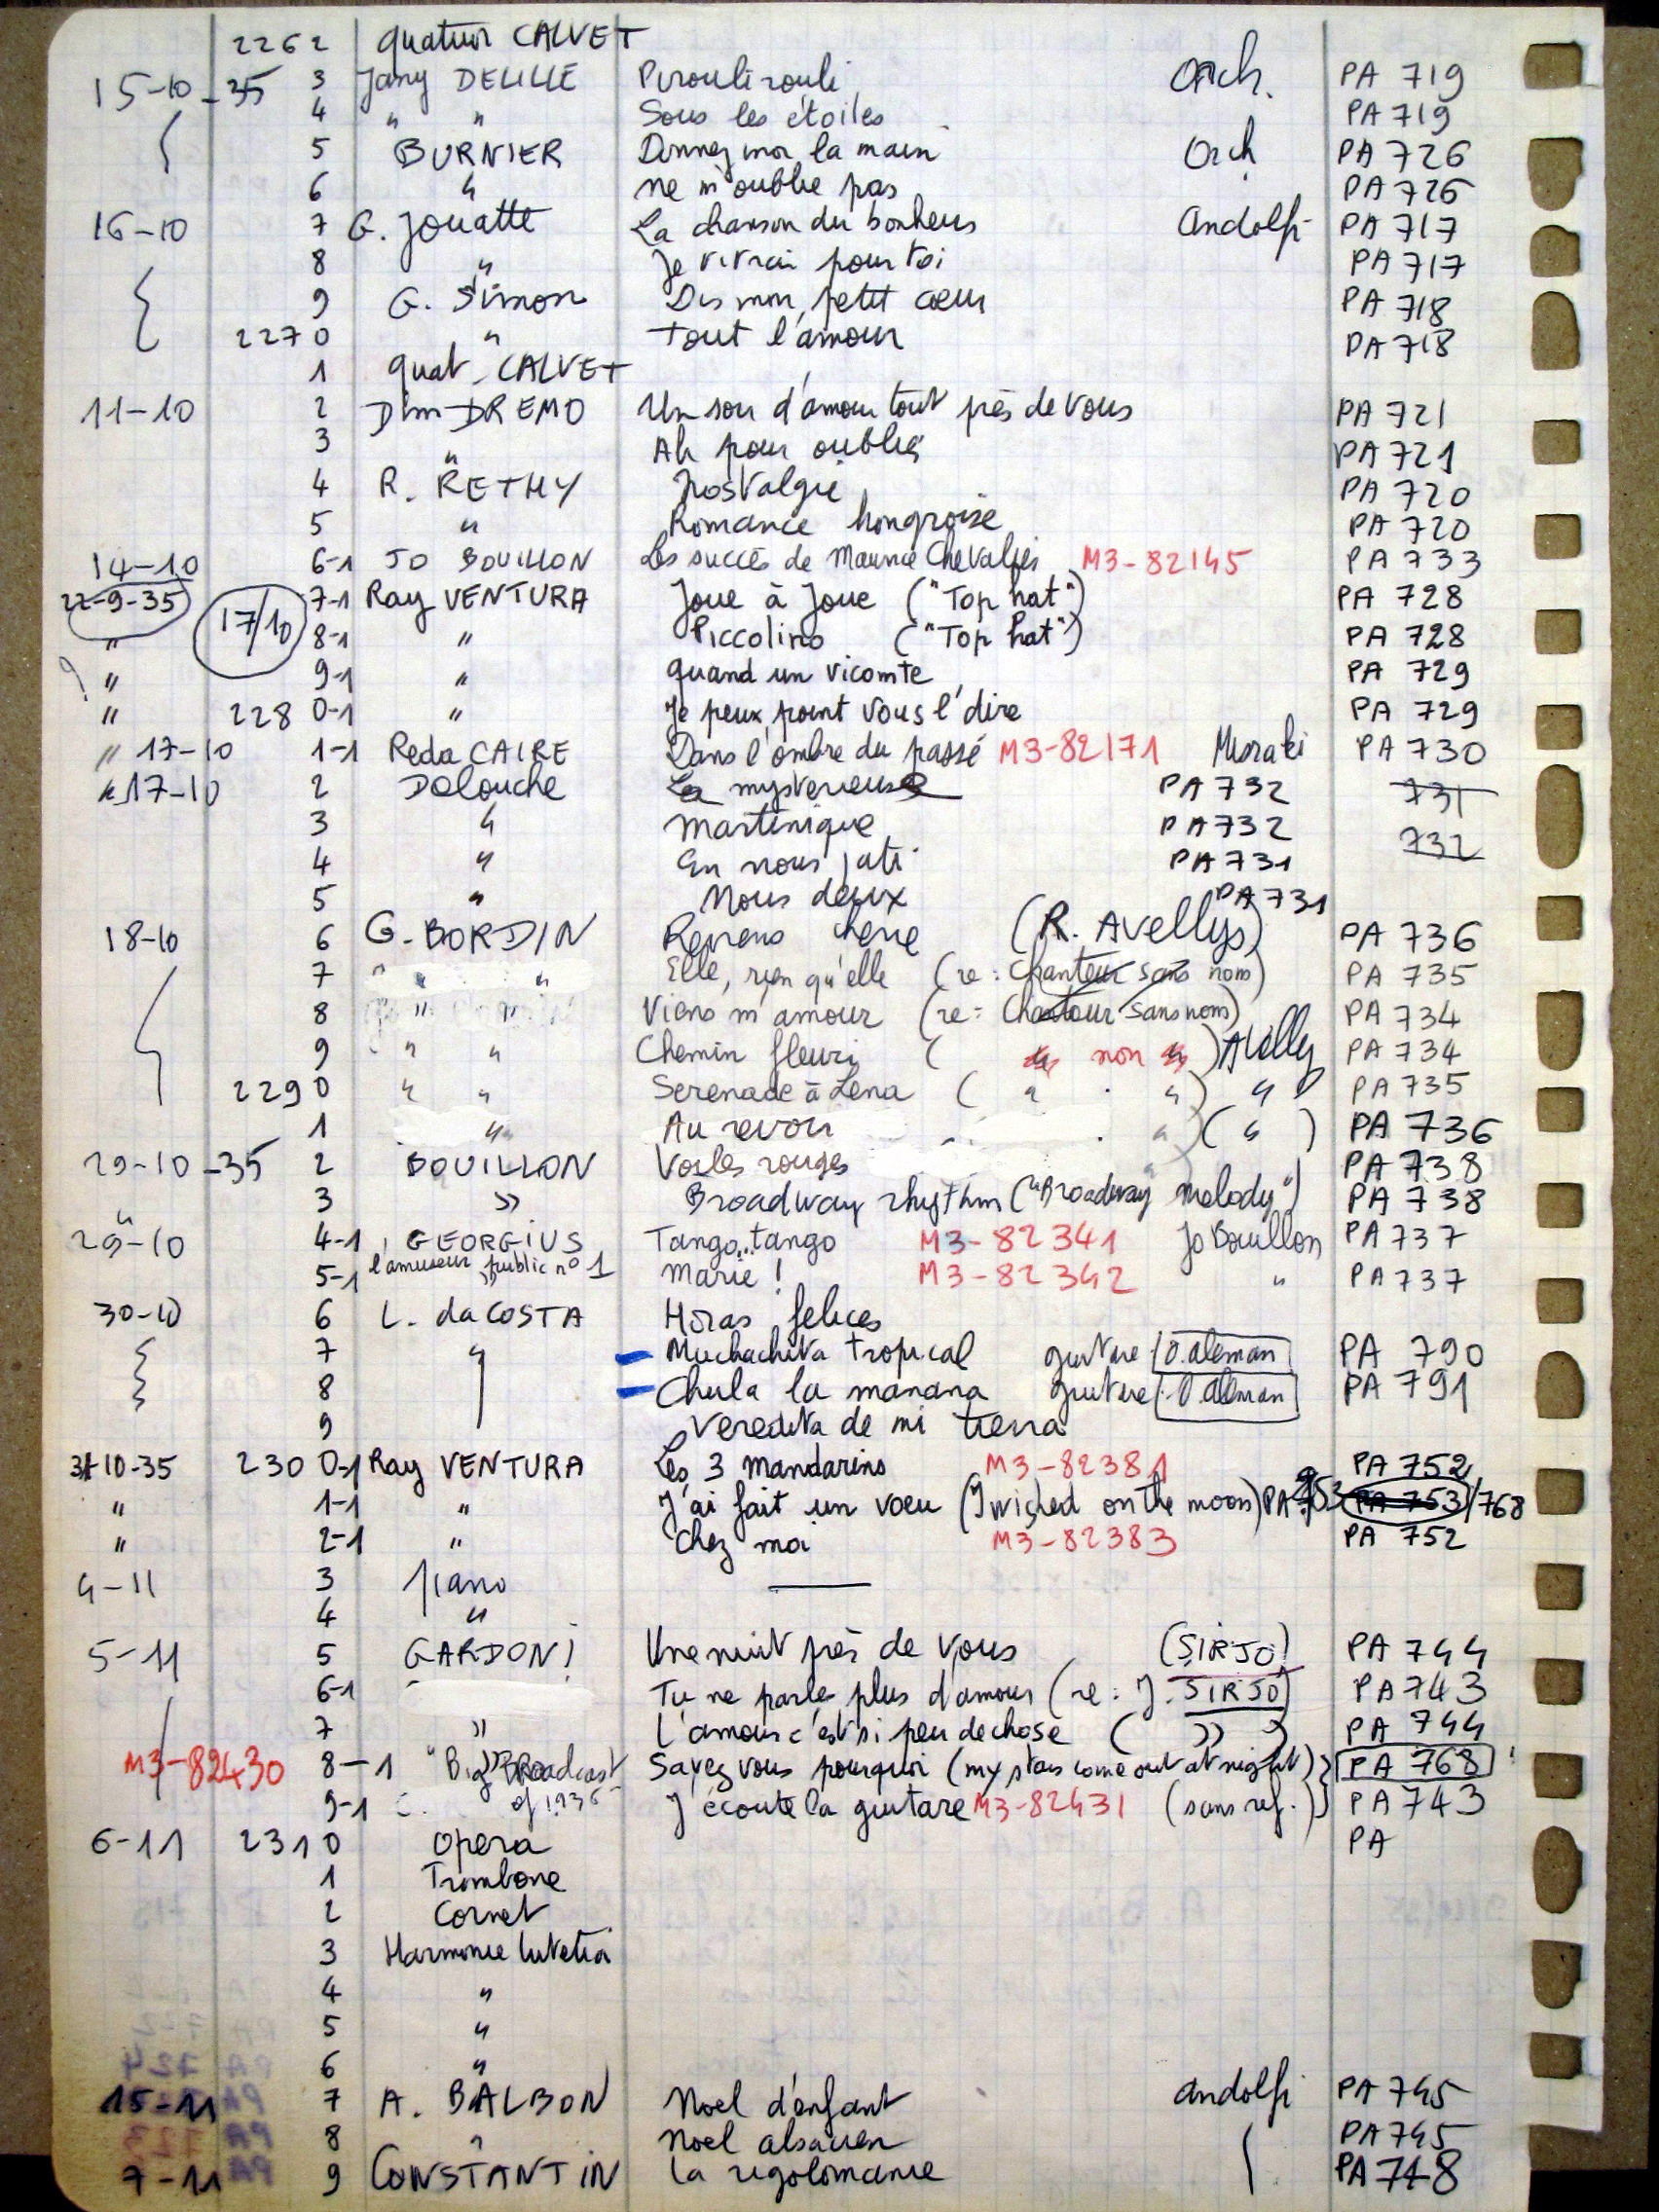 2262 Quatuor CALVET
15-10-35 3 Jany DELILLE Pirouli rouli Orch. PA 719
4 " " Sous les étoiles PA 719
5 BURNIER Donnez moi la main Orch PA 726
6 " ne m'oublie pas PA 726
16-10 7 G. Jouatte La chanson du bonheur Andolfi PA 717
8 " Je vivrai pour toi PA 717
9 G. Simon Dis mon petit cœur PA 718
2270 " Tout l'amour PA 718
1 Quat. CALVET
11-10 2 Dim DREMO Un soir d'amour tout près de vous PA 721
3 " Ah pour oublier PA 721
4 R. RETHY Nostalgie PA 720
5 " Romance hongroise PA 720
14-10 6-1 JO BOUILLON Les succès de Maurice Chevalier M3-82145 PA 733
22-9-35 17/10 7-1 Ray VENTURA Joue à Joue ("Top hat") PA 728
" 8-1 " Piccolino ("Top hat") PA 728
? " 9-1 " Quand un vicomte PA 729
" 228 0-1 " Je peux point vous l'dire PA 729
" 17-10 1-1 Reda CAIRE Dans l'ombre du passé M3-82171 Misraki PA 730
17-10 2 Delouche La mysterieuse PA 732 731
3 " Martinique PA 732 732
4 " En nous PA 731
5 " Nous deux PA 731
18-10 6 G. BORDIN Reviens cherie (R. Avellys) PA 736
7 " " Elle, rien qu'elle (re: Chanteur sans nom) PA 735
8 " " Viens m'amour (re: Chanteur sans nom) PA 734
9 " " Chemin fleuri ( " non " ) Avelly PA 734
2290 " " Serenade à Lena ( " . " ) " PA 735
1 " Au revoir . " ) ( " ) PA 736
29-10-35 2 BOUILLON Voiles rouges PA 738
" 3 " Broadway rhythm ("Broadway melody") PA 738
29-10 4-1 GEORGIUS Tango..tango M3-82341 Jo Bouillon PA 737
5-1 l'amuseur public n° 1 Marie! M3-82342 " PA 737
30-10 6 L. da COSTA Horas felices
7 " Muchachita tropical guitare O. aleman PA 790
8 Chula la manana guitare O. aleman PA 791
9 Veredita de mi tierra
31-10-35 230 0-1 Ray VENTURA Les 3 mandarins M3-82381 PA 752
" 1-1 " J'ai fait un vœu (I wished on the moon) PA 953 PA 753/768
" 2-1 " Chez moi M3-82383 PA 752
4-11 3 piano
4 "
5-11 5 GARDONI Une nuit près de vous (SIRJO) PA 744
6-1 Tu ne parles plus d'amour (re: J. SIRJO) PA 743
7 " L'amour c'est si peu de chose ( " ) PA 744
M3-82430 8-1 "Big Broadcast Savez vous pourquoi (my stars come out at night) PA 768
9-1 of 1936" J'écoute la guitare M3-82431 (sans ref.) PA 743
6-11 2310 Opera PA
1 Trombone
2 Cornet
3 Harmonie lutetia
4 "
5 "
6 "
15-11 7 A. BALBON Noel d'enfant Andolfi PA 745
8 " Noel alsacien PA 745
7-11 9 CONSTANTIN La rigolomanie PA 748